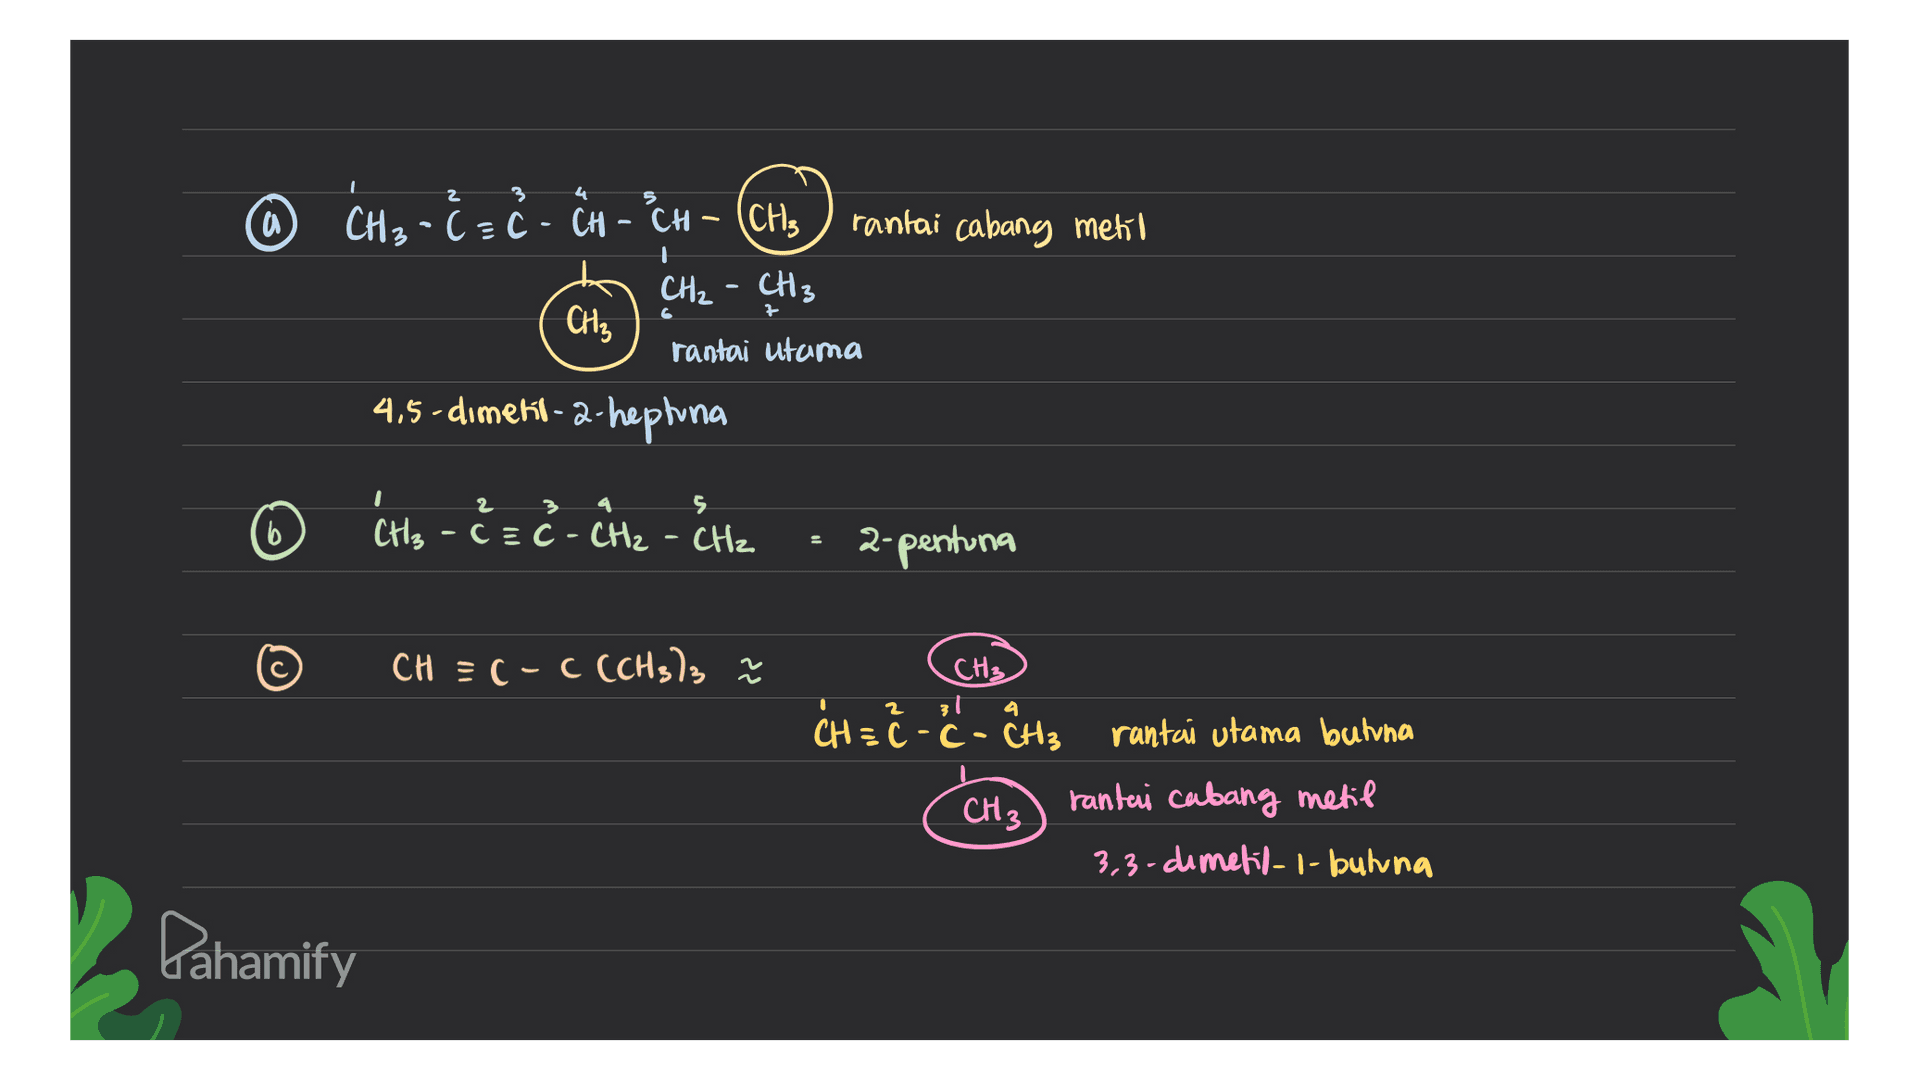 1 2 3 4 5
(a) CH3 - C ≡ C - CH - CH - CH3 rantai cabang metil
CH3 CH2 - CH3
6 7
rantai utama
4,5 - dimetil - 2 - heptuna
1 2 3 4 5
(b) CH3 - C ≡ C - CH2 - CH2 = 2-pentuna
(c) CH ≡ C - C (CH3)3 ≈ CH3
1 2 3 4
CH ≡ C - C - CH3 rantai utama butuna
CH3 rantai cabang metil
3,3 - dimetil - 1 - butuna
Pahamify